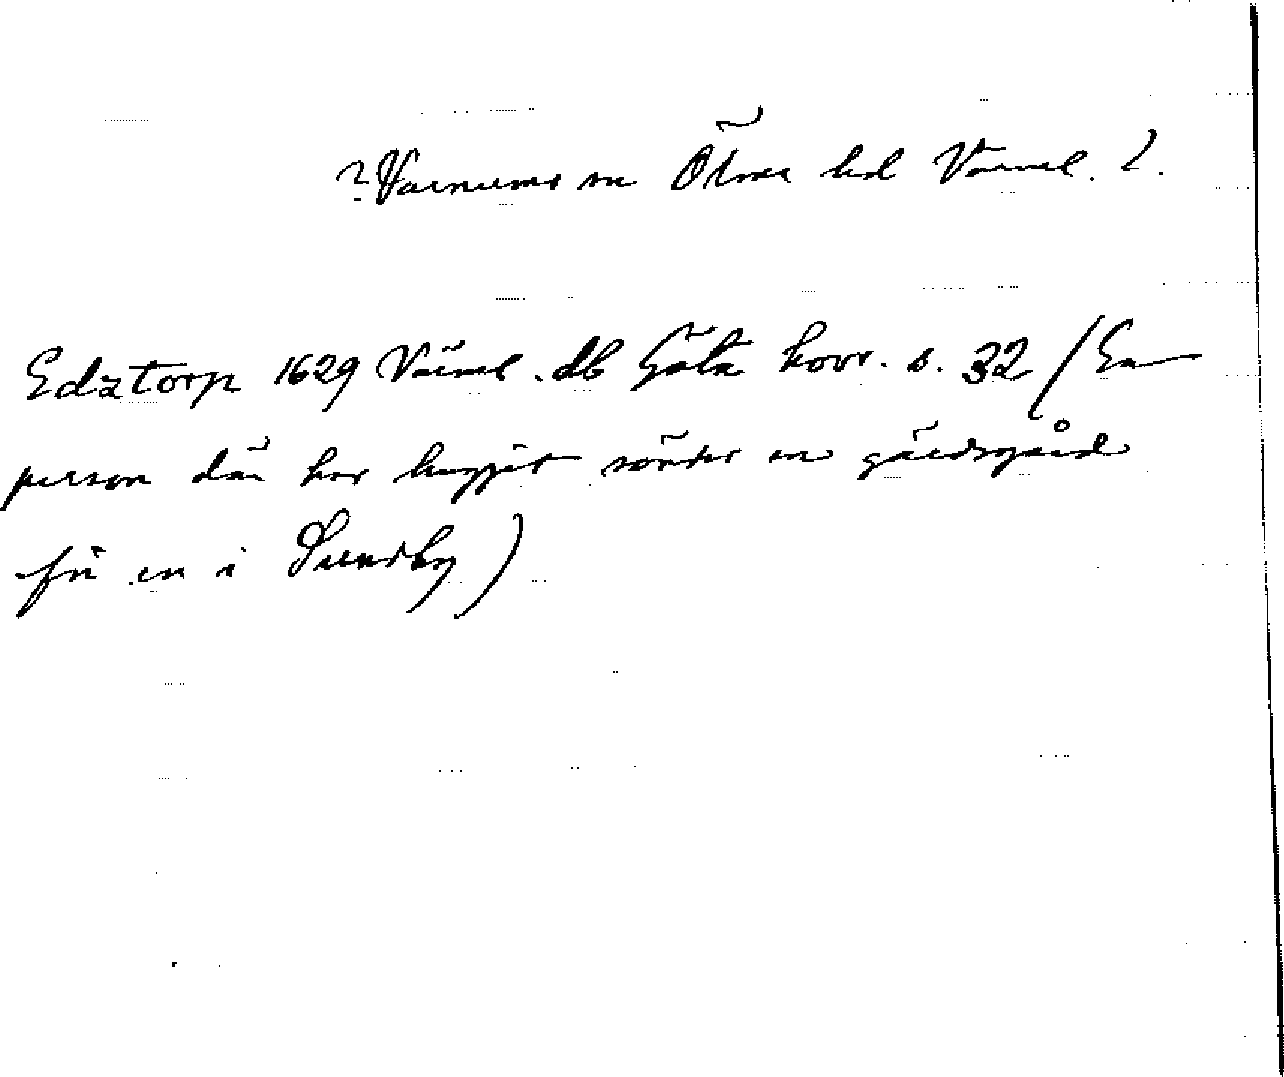 ? Varnums sn Ölme hd Värml. ?.
Edztorp 1629 Värml. db Göta hovr. s. 32 / En
person där har huggit sönder en gärdsgård
för en i Sundby)